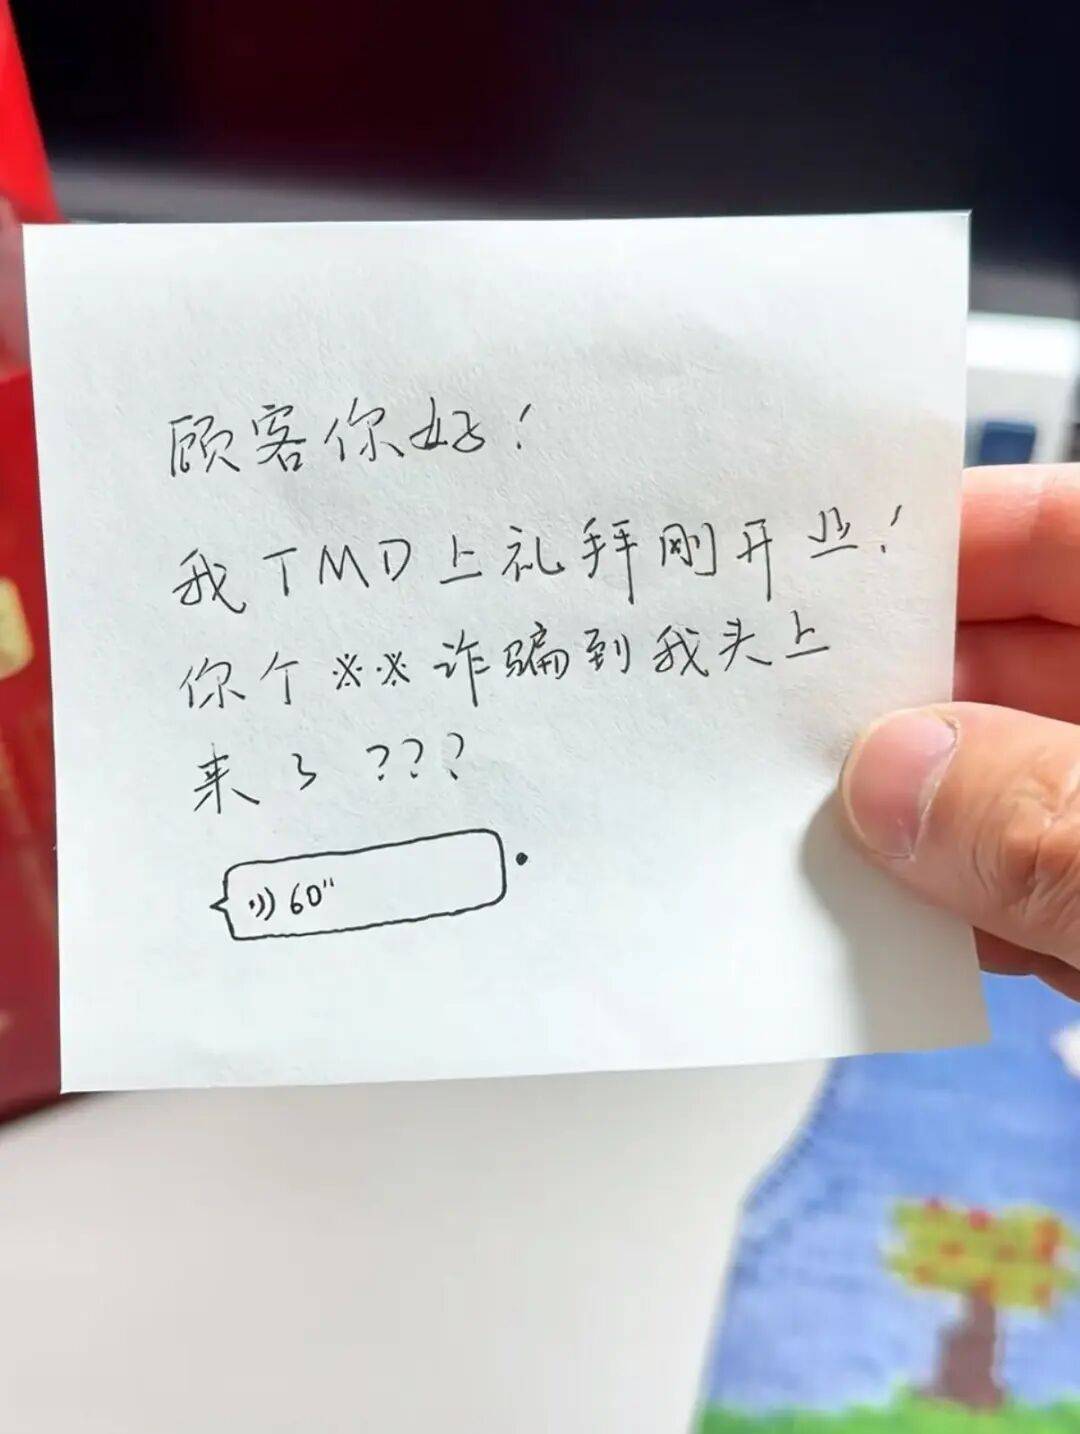 顾客你好！
我TMD上礼拜刚开业！
你个※※诈骗到我头上
来了???
60"